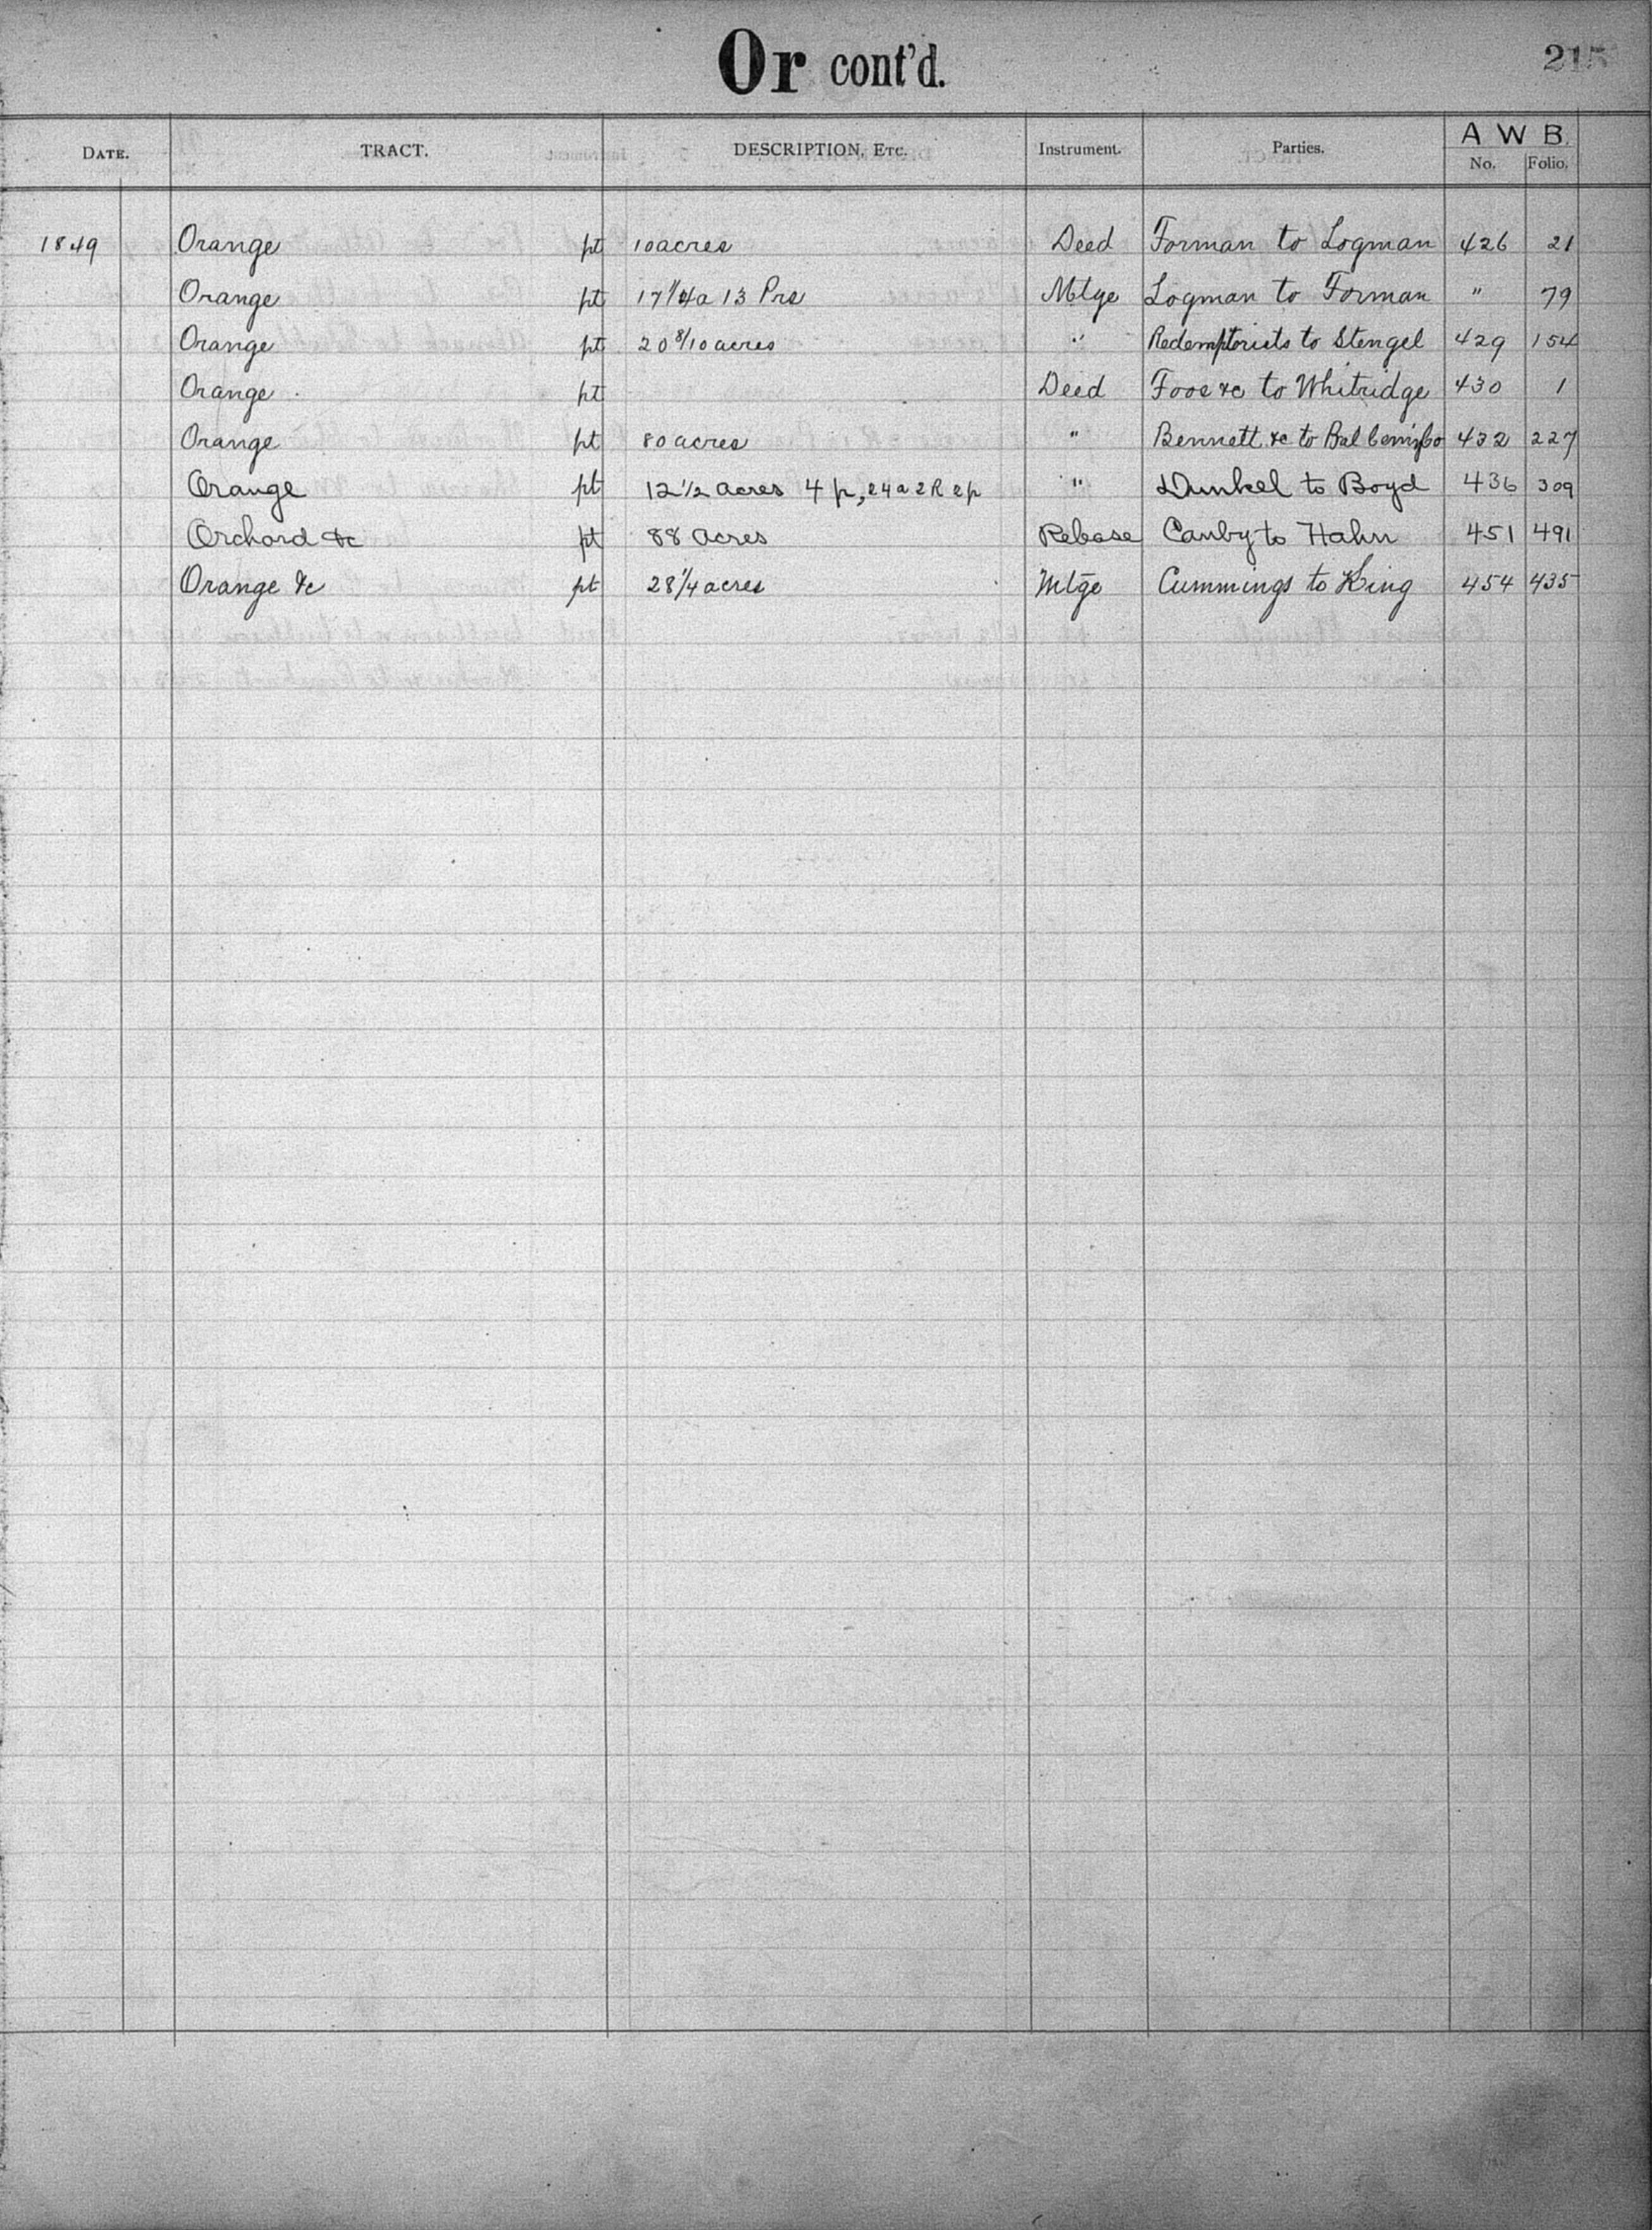 Or cont'd.
215
DATE. TRACT. DESCRIPTION, ETC. Instrument. Parties. A W B.
No. Folio.
1849 Orange pt 10 acres Deed Forman to Logman 426 21
Orange pt 17 1/4 a 13 Prs Mtge Logman to Forman " 79
Orange pt 20 8/10 acres " Redemptorists to Stengel 429 154
Orange pt Deed Foos &c to Whitridge 430 1
Orange pt 80 acres " Bennett &c to Bal Co 432 227
Orange pt 12 1/2 acres 4 p, 24 a 2 R 2 p " Dunkel to Boyd 436 309
Orchard &c pt 88 acres Release Canby to Hahn 451 491
Orange &c pt 28 1/4 acres Mtge Cummings to King 454 435